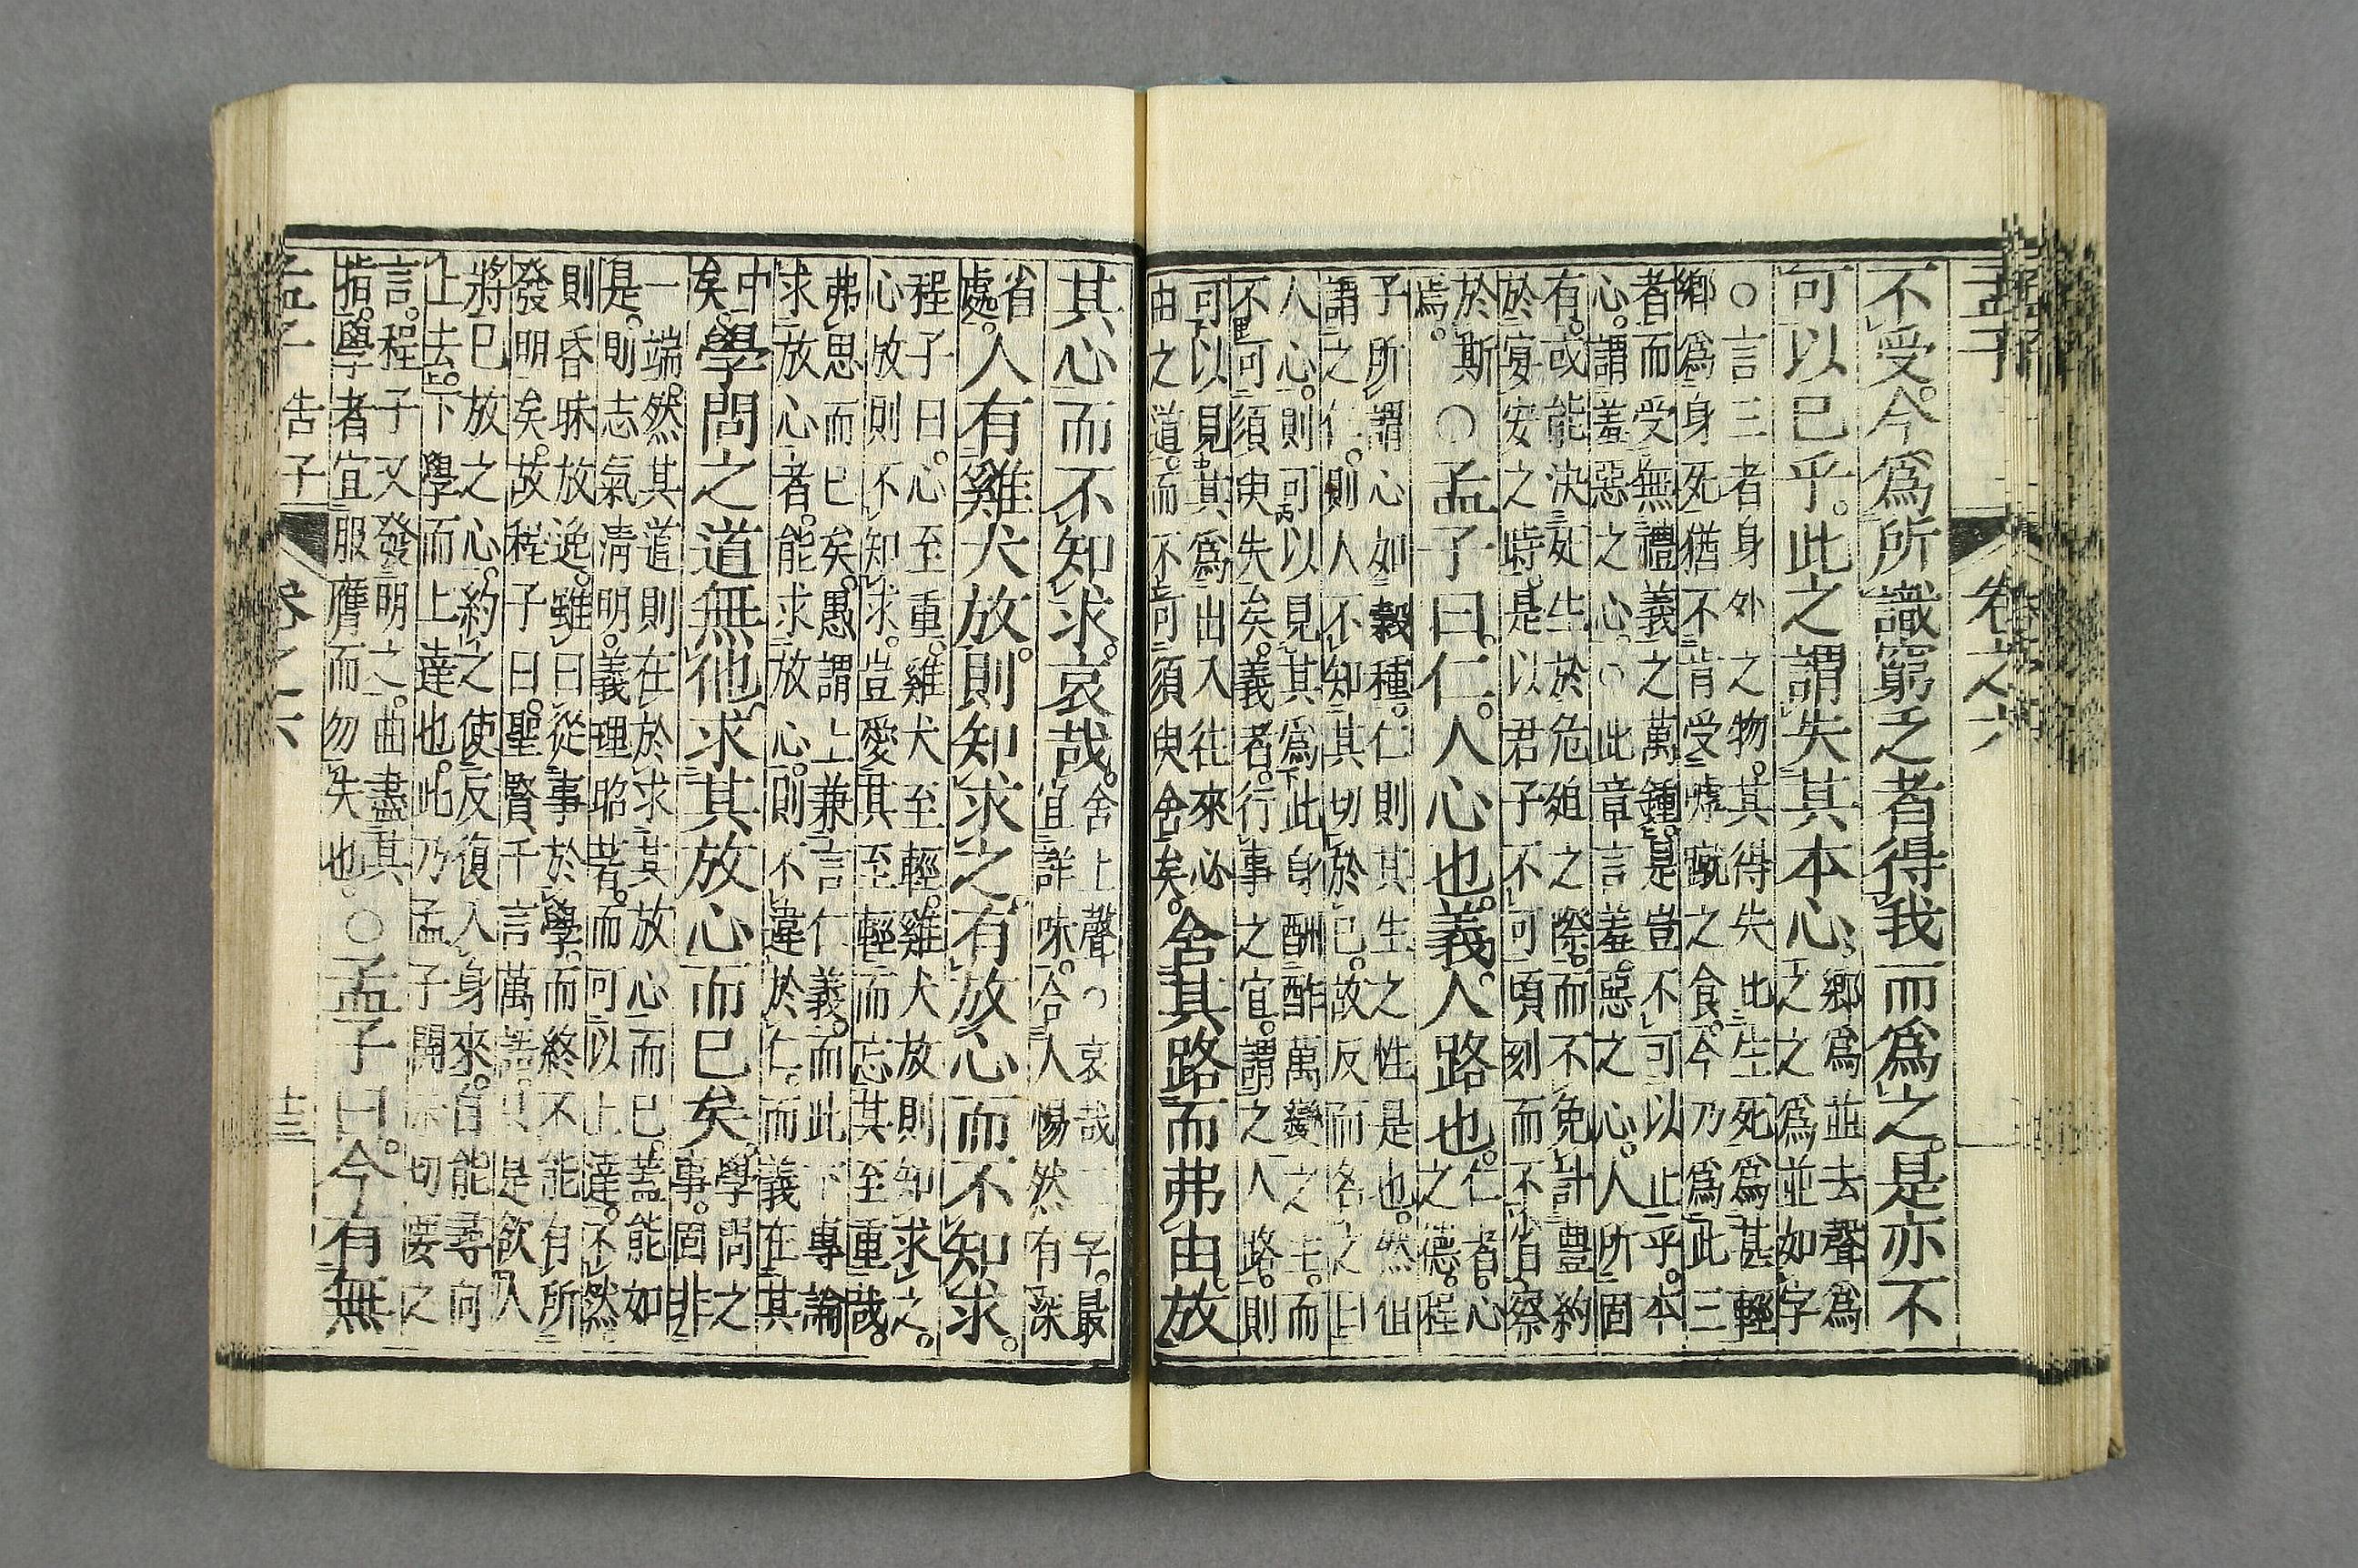 孟子 卷之六
不受。今爲所識窮乏者得我而爲之。是亦不
可以已乎。此之謂失其本心。鄕爲並去聲爲
之之爲並如字
○言三者身外之物。其得失比生死爲甚輕
鄕爲身死猶不肯受嘑蹴之食。今乃爲此三
者而受無禮義之萬鍾。是豈不可以止乎。本
心。謂羞惡之心。○此章言羞惡之心。人所固
有。或能決死生於危殆之際。而不免計豊約
於宴安之時。是以君子不可頃刻而不省察
於斯
焉。○孟子曰。仁。人心也。義。人路也。仁者。心
之德。程
子所謂心如穀種。仁則其生之性是也。然但
謂之仁。則人不知其切於己。故反而名之曰
人心。則可以見其爲此身酬酢萬變之主。而
不可須臾失矣。義者。行事之宜。謂之人路。則
可以見其爲出入往來必
由之道。而不可須臾舍矣。舍其路而弗由。放
其心而不知求。哀哉。舍上聲○哀哉二字。最
宜詳味。令人惕然有深
省
處。人有雞犬放。則知求之。有放心而不知求。
程子曰。心至重。雞犬至輕。雞犬放則知求之。
心放則不知求。豈愛其至輕而忘其至重哉。
弗思而已矣。愚謂上兼言仁義。而此下專論
求放心者。能求放心。則不違於仁。而義在其
中
矣。學問之道無他。求其放心而已矣。學問之
事。固非
一端。然其道則在於求其放心而已。蓋能如
是。則志氣淸明。義理昭著。而可以上達。不然
則昏昧放逸。雖曰從事於學。而終不能有所
發明矣。故程子曰。聖賢千言萬語。只是欲人
將已放之心。約之使反復入身來。自能尋向
上去。下學而上達也。此乃孟子開示切要之
言。程子又發明之。曲盡其
指。學者宜服膺而勿失也。○孟子曰。今有無
孟子 告子 卷之六